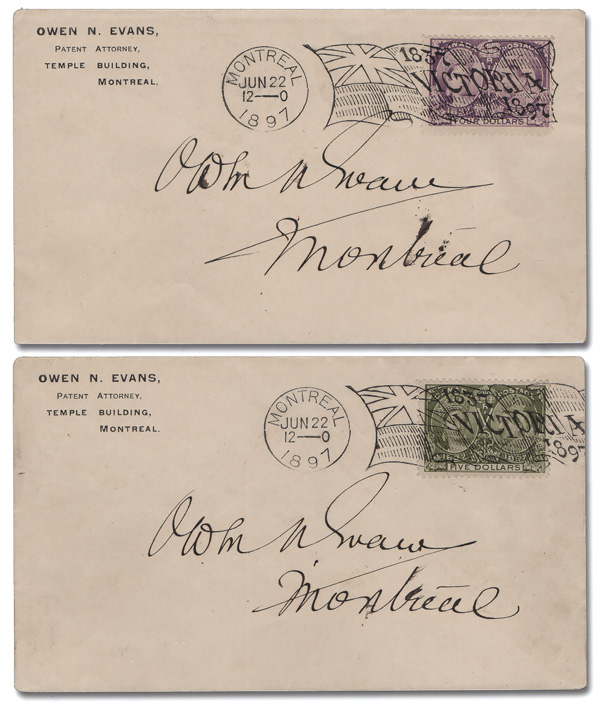 OWEN N. EVANS,
PATENT ATTORNEY,
TEMPLE BUILDING,
MONTREAL.
MONTREAL
JUN 22
12—0
1897
1837
VICTORIA
1897
POSTAGE
FOUR DOLLARS
Owen N Evans
Montreal
OWEN N. EVANS,
PATENT ATTORNEY,
TEMPLE BUILDING,
MONTREAL.
MONTREAL
JUN 22
12—0
1897
1837
VICTORIA
1897
POSTAGE
FIVE DOLLARS
Owen N Evans
Montreal